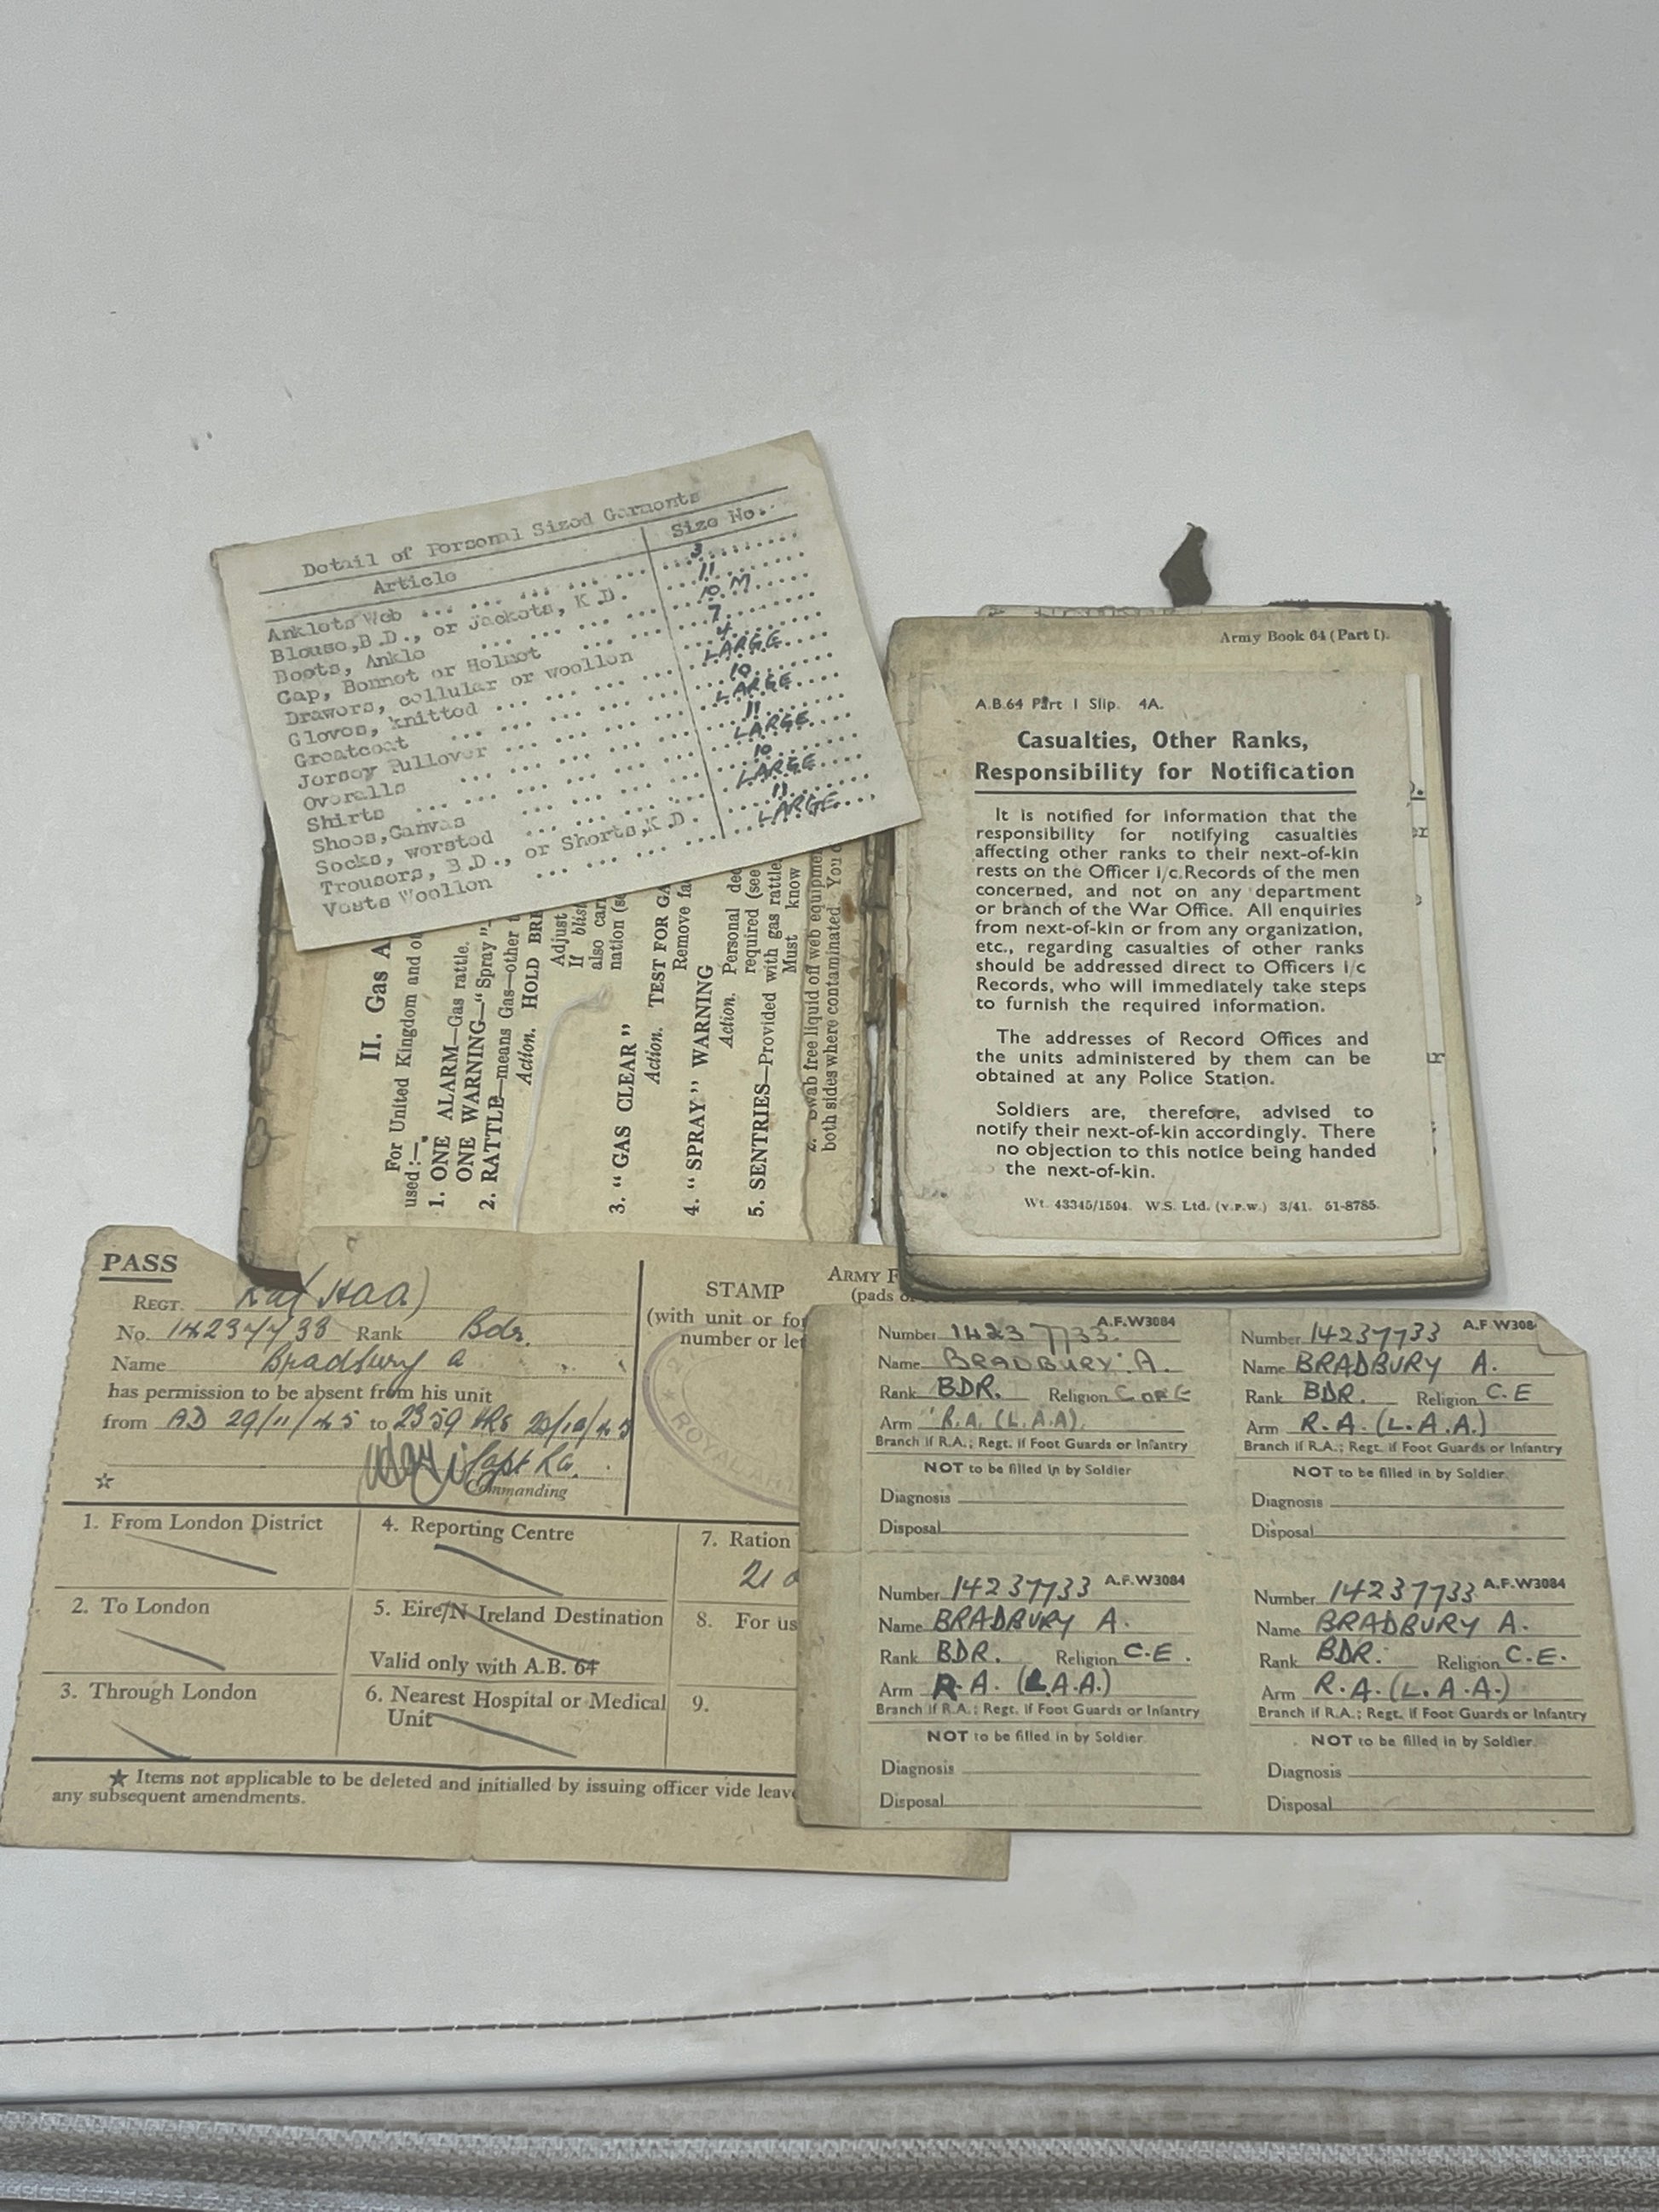 Detail of Personal Sized Garments
Article Size No.
Anklets Web ... ... ... ... 3
Blouse,B.D., or Jackets, K.D. 11
Boots, Anklo ... ... ... 10 M
Cap, Bonnet or Helmet ... ... 7
Drawers, cellular or woollen 4
Gloves, knitted ... ... ... LARGE
Greatcoat ... ... ... ... 10
Jersey Pullover ... ... ... LARGE
Overalls ... ... ... ... 11
Shirts ... ... ... ... LARGE
Shoes,Canvas ... ... ... 10
Socks, worsted ... ... ... LARGE
Trousers, B.D., or Shorts,K.D. 11
Vests Woollen ... ... ... LARGE
II. Gas A
For United Kingdom and
used:—
1. ONE ALARM—Gas rattle.
ONE WARNING—"Spray"
2. RATTLE—means Gas—other
Action. HOLD BRE
Adjust
If blist
also carr
nation (se
3. "GAS CLEAR"
Action. TEST FOR GA
Remove fa
4. "SPRAY" WARNING
Action. Personal dec
required (see
5. SENTRIES—Provided with gas rattle
Must know
2. Swab free liquid off web equipmen
both sides where contaminated. You
Army Book 64 (Part I).
A.B.64 Part I Slip. 4A.
Casualties, Other Ranks,
Responsibility for Notification
It is notified for information that the
responsibility for notifying casualties
affecting other ranks to their next-of-kin
rests on the Officer i/c.Records of the men
concerned, and not on any department
or branch of the War Office. All enquiries
from next-of-kin or from any organization,
etc., regarding casualties of other ranks
should be addressed direct to Officers i/c
Records, who will immediately take steps
to furnish the required information.
The addresses of Record Offices and
the units administered by them can be
obtained at any Police Station.
Soldiers are, therefore, advised to
notify their next-of-kin accordingly. There
no objection to this notice being handed
the next-of-kin.
Wt. 43345/1594. W.S. Ltd. (v.p.w.) 3/41. 51-8785.
PASS
REGT. RA (HAA)
No. 14237733 Rank Bdr.
Name Bradbury A
has permission to be absent from his unit
from AD 29/11/45 to 2359 HRS 20/12/45
Capt RA.
Commanding
☆
STAMP
(with unit or for
number or let
ARMY F
(pads o
★ ROYAL AR
1. From London District
2. To London
3. Through London
4. Reporting Centre
5. Eire/N Ireland Destination
Valid only with A.B. 64
6. Nearest Hospital or Medical
Unit
7. Ration
21 d
8. For us
9.
★ Items not applicable to be deleted and initialled by issuing officer vide leave
any subsequent amendments.
Number 14237733. A.F.W3084
Name BRADBURY. A.
Rank BDR. Religion C OF E
Arm R.A. (L.A.A).
Branch if R.A.; Regt. if Foot Guards or Infantry
NOT to be filled in by Soldier
Diagnosis
Disposal
Number 14237733 A.F.W308
Name BRADBURY A.
Rank BDR. Religion C.E
Arm R.A. (L.A.A)
Branch if R.A.; Regt. if Foot Guards or Infantry
NOT to be filled in by Soldier.
Diagnosis
Disposal
Number 14237733 A.F.W3084
Name BRADBURY A.
Rank BDR. Religion C.E.
Arm R.A. (L.A.A)
Branch if R.A.; Regt. if Foot Guards or Infantry
NOT to be filled in by Soldier.
Diagnosis
Disposal
Number 14237733 A.F.W3084
Name BRADBURY A.
Rank BDR. Religion C.E.
Arm R.A. (L.A.A.)
Branch if R.A.; Regt. if Foot Guards or Infantry
NOT to be filled in by Soldier.
Diagnosis
Disposal